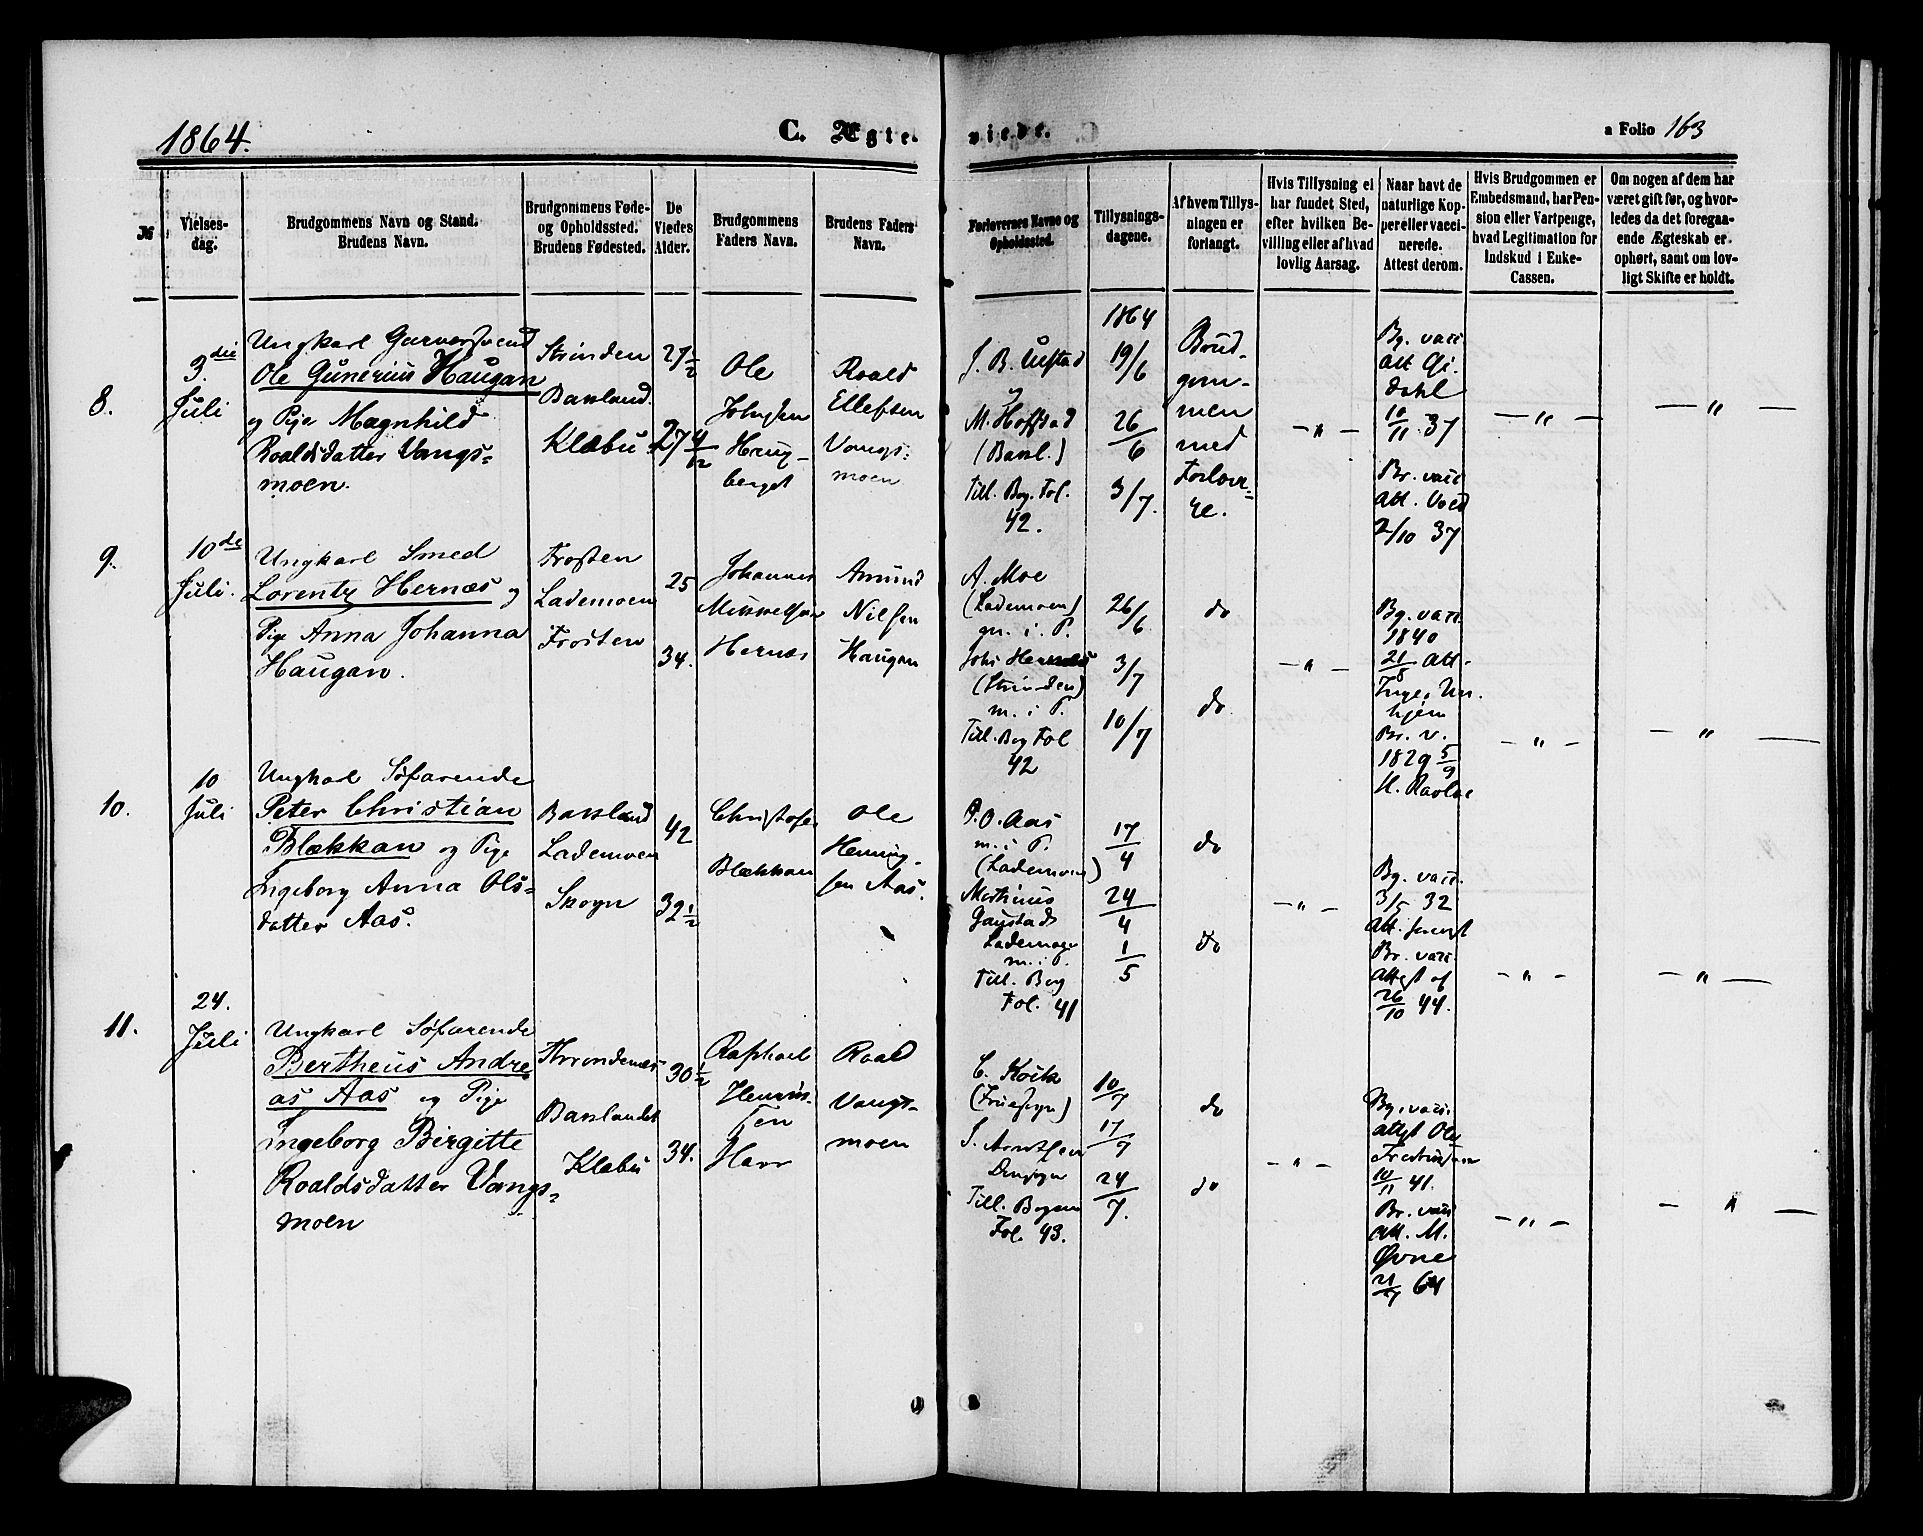 1864.
C. Ægte-
viede.
a Folio 163
№
Vielses-
dag.
Brudgommens Navn og Stand.
Brudens Navn.
Brudgommens Føde-
og Opholdssted.
Brudens Fødested.
De
Viedes
Alder.
Brudgommens
Faders Navn.
Brudens Faders
Navn.
Forlovernes Navne og
Opholdssted.
Tillysnings-
dagene.
Af hvem Tillys-
ningen er
forlangt.
Hvis Tillysning ei
har fundet Sted,
efter hvilken Be-
villing eller af hvad
lovlig Aarsag.
Naar havt de
naturlige Kop-
per eller vacci-
nerede.
Attest derom.
Hvis Brudgommen er
Embedsmand, har Pen-
sion eller Vartpenge,
hvad Legitimation for
Indskud i Enke-
Cassen.
Om nogen af dem har
været gift før, og hvor-
ledes da det foregaa-
ende Ægteskab er
ophørt, samt om lov-
ligt Skifte er holdt.
8.
3die
Juli
Ungkarl Garversvend
Ole Gunerius Haugan
og Pige Magnhild
Roaldsdatter Vangs-
moen.
Strinden
Baxland.
Klæbu
27 1/2
27 4/12
Ole
Johnsen
Haug-
berget
Roald
Ellefsen
Vangs-
moen
J. B. Ulstad
M. Hoffstad
(Baxl.)
Till. Bog. Fol.
42.
1864
19/6
26/6
3/7.
Brud-
gom-
men
med
Forlove-
re.
— " —
Bg. vacc
Att
dahl
10/11 37
Br. vacc
Att.
2/10 37
— " —
— " —
9.
10de
Juli.
Ungkarl Smed
Lorentz Hernæs og
Pige Anna Johanna
Haugan.
Frosten
Lademoen
Frosten
25
34.
Johannes
Mikkelsen
Hernæs
Amund
Nilsen
Haugan
A. Moe
(Lademoen)
gm. i. P.
Johs Hernæs
(Strinden)
m. i P.
Till. Bog Fol
42
26/6
3/7
10/7
do
do
— " —
Bg. vacc.
1840
21/8 Att-
hjem
Br. v.
1829 5/9
— " —
— " —
10.
10
Juli
Ungkarl Søfarende
Peter Christian
Blækkan og Pige
Ingeborg Anna Ols-
datter Aas.
Baxland
Lademoen
Skogn
42
32 1/2
Christofer
Blækkan
Ole
Henning-
sen Aas.
P. O. Aas
m. i P.
(Lademoen)
Marthinus
Gaustad
Lademoen
m. i P.
Till. Bog
Fol. 41
17/4
24/4
1/5
do
do
— " —
Bg. vacc.
3/5 32
Br. vacc.
Attest af
26/10 44.
— " —
— " —
11.
24.
Juli
Ungkarl Søfarende
Bertheus Andre-
as Aas og Pige
Ingeborg Birgitte
Roaldsdatter Vangs-
moen
Throndenæs
Baxlandet
Klæbu
30 1/2
34.
Raphael
Henrik-
sen
Roald
Vangs-
moen
(Fruesogn)
Till. Bogen
Fol. 43.
10/7
17/7
24/7.
do
do
— " —
Bg. vacc.
attest Ole
10/11 41.
Br. vacc
att. M.
Øvne
21/7 64
— " —
— " —